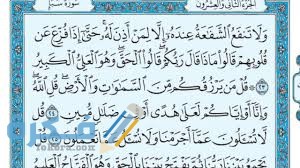 الجزء الثاني والعشرون سورة سبأ
وَلَا تَنفَعُ ٱلشَّفَٰعَةُ عِندَهُۥٓ إِلَّا لِمَنۡ أَذِنَ لَهُۥۚ حَتَّىٰٓ إِذَا فُزِّعَ عَن
قُلُوبِهِمۡ قَالُواْ مَاذَا قَالَ رَبُّكُمۡۖ قَالُواْ ٱلۡحَقَّۖ وَهُوَ ٱلۡعَلِيُّ ٱلۡكَبِيرُ
٢٣ ۞ قُلۡ مَن يَرۡزُقُكُم مِّنَ ٱلسَّمَٰوَٰتِ وَٱلۡأَرۡضِۖ قُلِ ٱللَّهُۖ
وَإِنَّآ أَوۡ إِيَّاكُمۡ لَعَلَىٰ هُدًى أَوۡ فِي ضَلَٰلٖ مُّبِينٖ ٢٤ قُل
لَّا تُسۡـَٔلُونَ عَمَّآ أَجۡرَمۡنَا وَلَا نُسۡـَٔلُ عَمَّا تَعۡمَلُونَ ٢٥
يَفۡتَحُ بَيۡنَنَا بِٱلۡحَقِّ وَهُوَ ٱلۡفَتَّاحُ ٱلۡعَلِيمُ